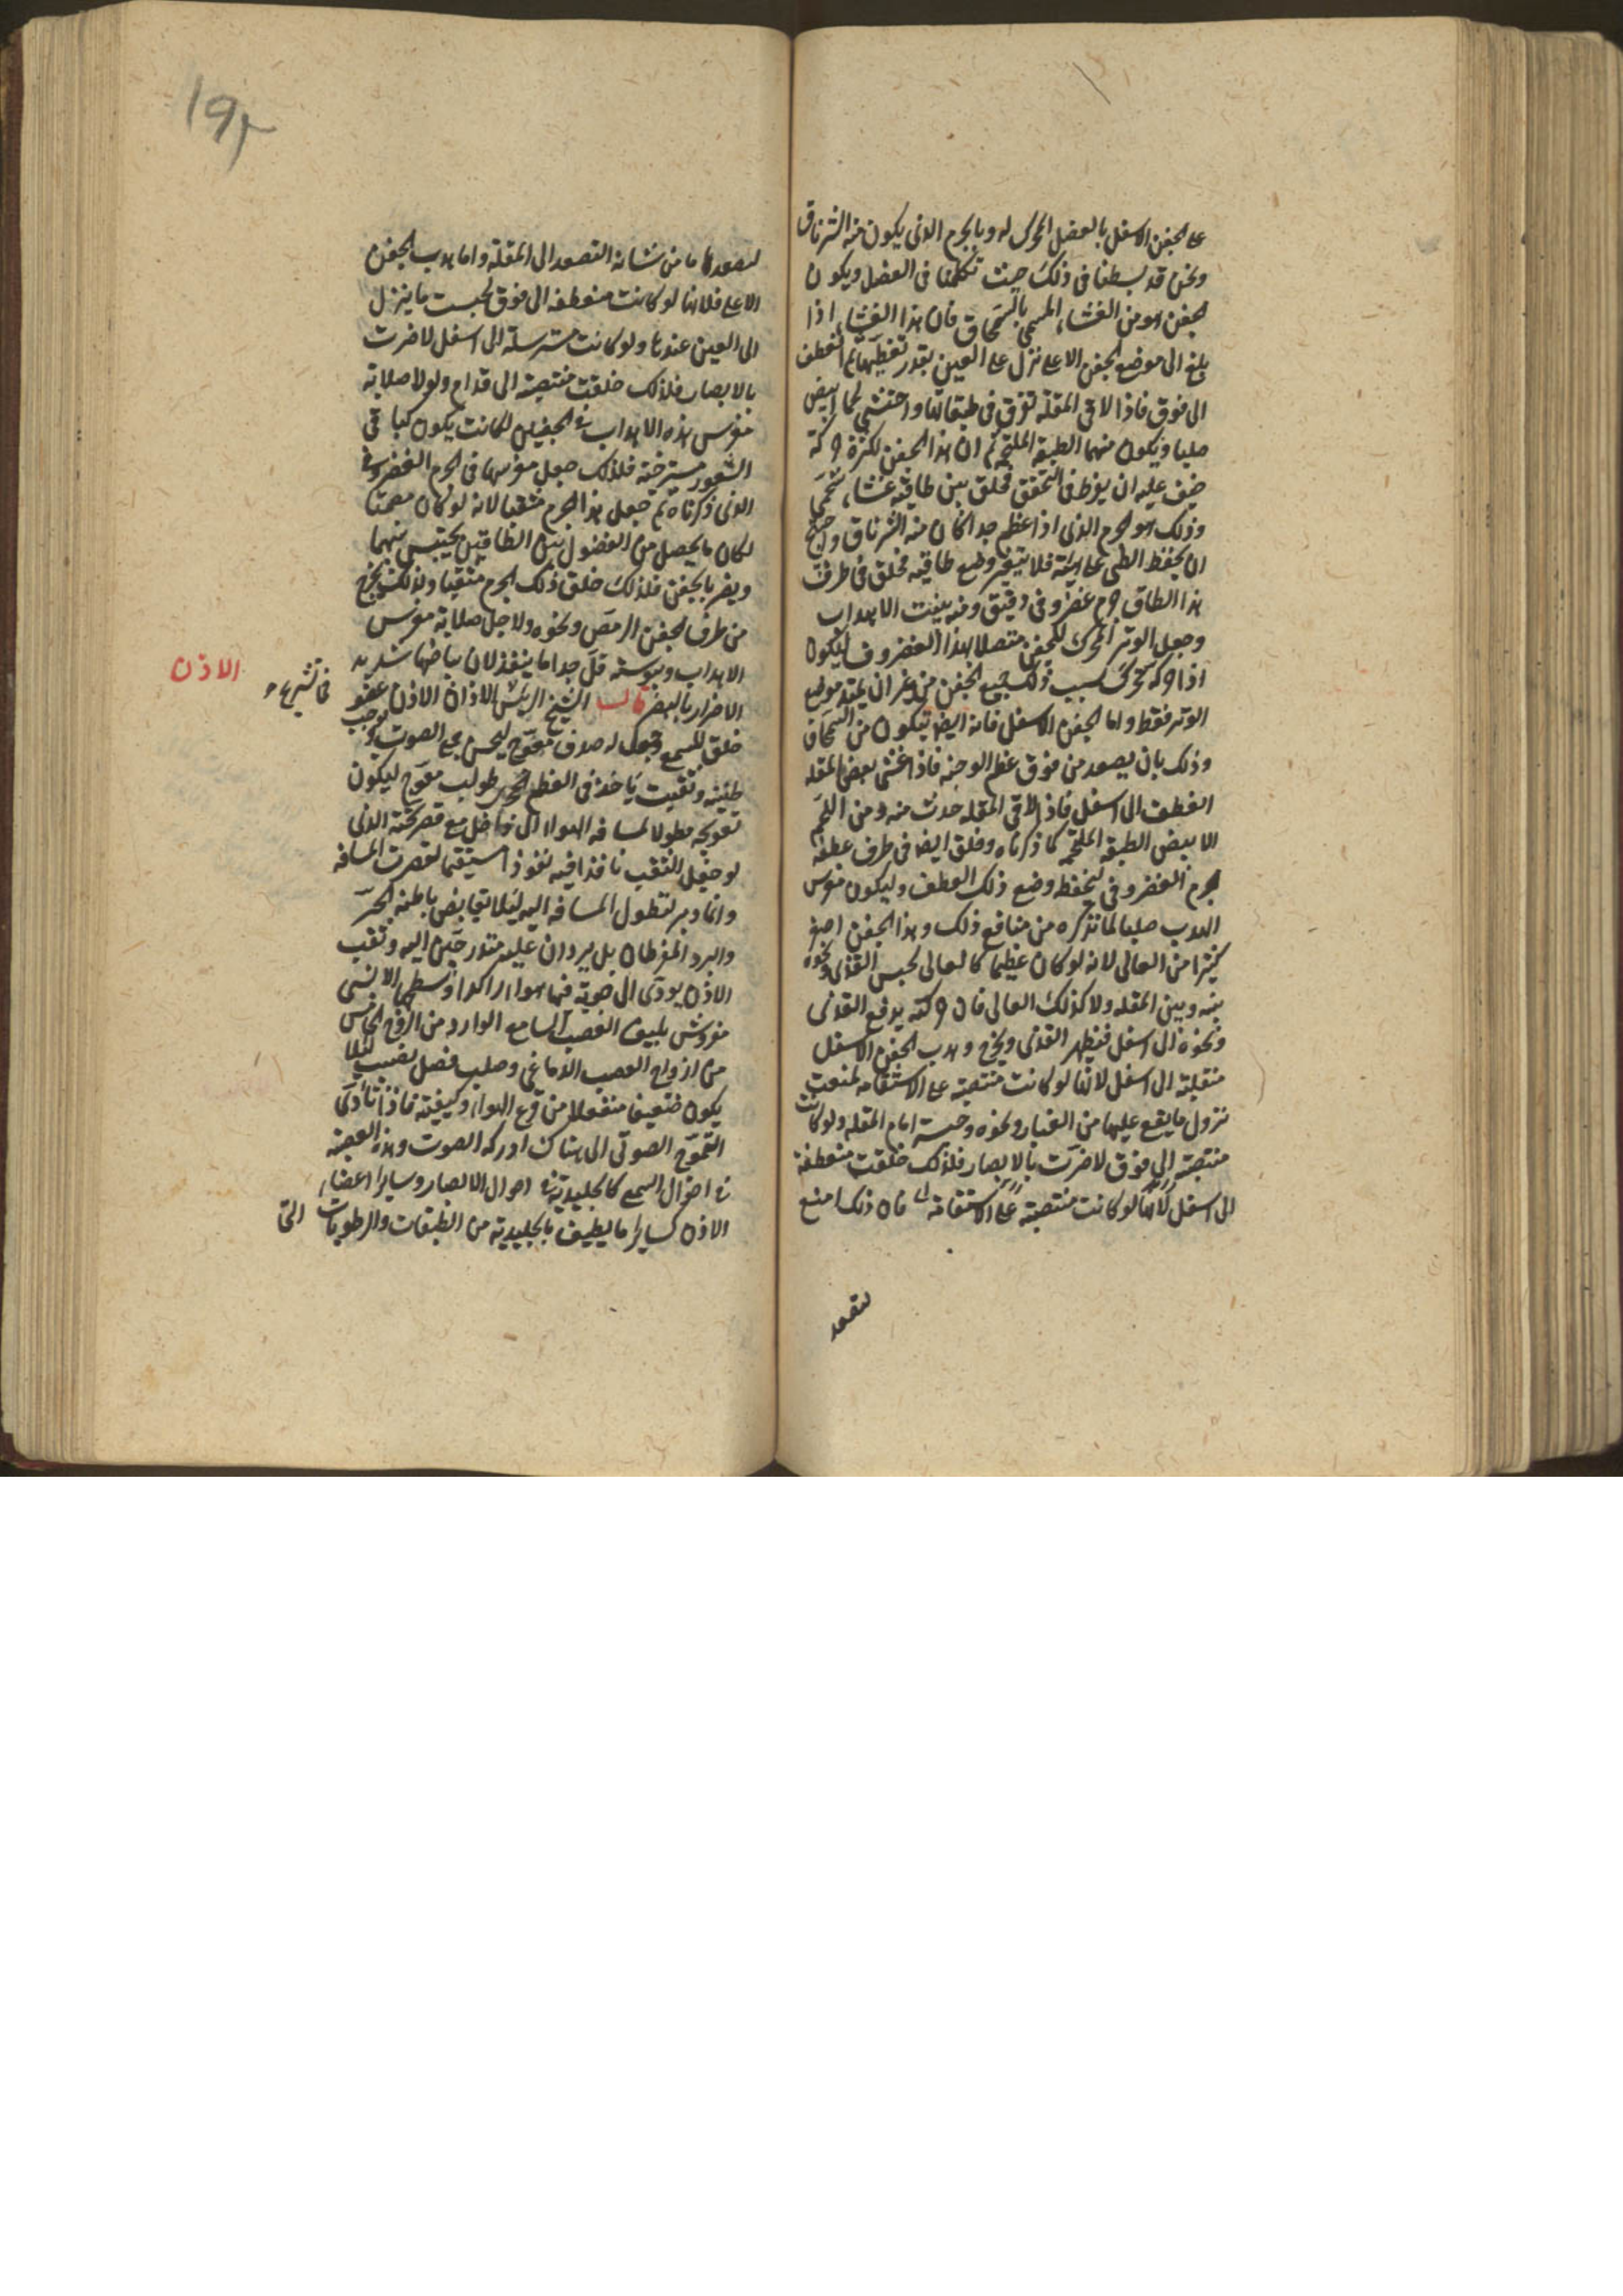 على الجفن الاسفل بالعضل المحرك له وبالجرم الذى يكون منه الشرناق
ونحن قد بسطنا فى ذلك حيث تكلمنا فى العضل ويكون
الجفن هو من الغشاء المسمى بالسمحاق فان هذا الغشاء اذا
بلغ الى موضع الجفن الاعلى نزل على العين بقدر تغطيتها ثم انعطف
الى فوق فاذا لاقى المقلة تفرق فى طبقاتها واحتشى لحما ابيض
صلبا ويكون منهما الطبقة الملتحمة ثم ان هذا الجفن لكثرة حركته
خيف عليه ان يفرط فى التحقق فخلق بين طاقيه غشاء شحمى
وذلك هو الجرم الذى اذا عظم جدا كان منه الشرناق واحتيج
ان يحفظ الطى على هيئته فلا يتغير وضع طاقيه فخلق فى طرف
هذا الطاق جرم غضروفى دقيق ومنه ينبت الاهداب
وجعل الوتر المحرك للجفن متصلا بهذا الغضروف ليكون
اذا حركه تحرك بسبب ذلك جميع الجفن من غير ان يمتد موضع
الوتر فقط واما الجفن الاسفل فانه ايضا يتكون من السمحاق
وذلك بان يصعد من فوق عظم الوجنه فاذا غشى بعض المقله
انعطف الى اسفل فاذا لاقى المقله حدث منه ومن اللحم
الابيض الطبقه الملتحمه كما ذكرناه وخلق ايضا فى طرف عطفه
جرم الغضروفى ليحفظ وضع ذلك العطف وليكون مغرس
الهدب صلبا لما نذكره من منافع ذلك وهذا الجفن اصغر
كثيرا من العالى لانه لو كان عظيما كالعالى لحبس القذى ونحوه
بينه وبين المقله ولا كذلك العالى فان حركته يدفع القذى
ونحوه الى اسفل فيظهر القذى ويخرج وهدب الجفن الاسفل
منقلبة الى اسفل لانها لو كانت منتصبة على الاستقامه لمنعت
نزول ما يقع عليها من الغبار ونحوه وحبسته امام المقله ولو كانت
منتصبة الى فوق لاضرت بالابصار فلذلك خلقت منعطفة
الى اسفل لانها لو كانت منتصبة على الاستقامة فان ذلك امنع
لتصعد
١٩٢
لتصعدها ما من شانه التصعد الى المقلة واما هدب الجفن
الاعلى فلانها لو كانت منعطفه الى فوق لحبست ما ينزل
الى العين عندها ولو كانت مسترسلة الى اسفل لاضرت
بالابصار فلذلك خلقت منتصبة الى قدام ولولا صلابة
مغرس هذه الاهداب فى الجفنين لكانت يكون كباقى
الشعور مسترخية فلذلك جعل مغرسها فى الجرم الغضروفى
الذى ذكرناه ثم جعل هذا الجرم مثقبا لانه لو كان مصمتا
لكان ما يحصل من الفضول بين الطاقين يحتبس بينهما
ويضر بالجفن فلذلك خلق ذلك الجرم مثقبا ولذلك يخرج
من طرف الجفن الرمص ونحوه ولاجل صلابة مغرس
الاهداب ويبوسته قل جدا ما ينفذ لان بياضها شديد
الاضرار بالبصر قال الشيخ الرئيس الاذن الاذن عضو
فى تشريح
الاذن
خلق للسمع وجعل له صدف معوج ليحبس جميع الصوت ويوجب
طنينه وثقبت ياخذ فى العظم الحجرى طولب معوج ليكون
تعويجه مطولا لمسافه الهوا الى داخل مع قصر تحته الذى
لو جعل الثقب نافذا فيه نفوذا مستقيما لقصرت المسافه
وانما دبر لتطول المسافه اليه لئلا يغافض باطنه الحر
والبرد المفرطان بل يردان عليه متدرجين اليه وثقب
الاذن يودى الى جوبة فيها هواء راكد وسطحها الانسى
مفروش بليف العصب السامع الوارد من الزوج الخامس
من ازواج العصب الدماغى وصلب فضل تصليب لئلا
يكون ضعيفا منفعلا من قرع الهواء وكيفيته فاذا تادى
التموج الصوتى الى هناك ادركه الصوت وهذه العصبة
فى احوال السمع كالجليدية فى احوال الابصار وسائر اعضاء
الاذن كسائر ما يطيف بالجليدية من الطبقات والرطوبات التى